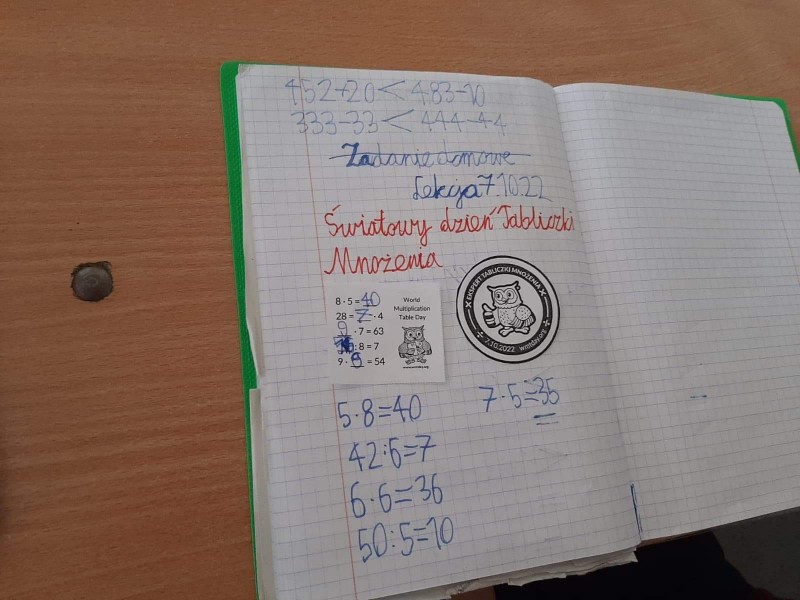 452+20<483-10
333-33<444-44
Zadanie domowe
Lekcja 7.10.22
Światowy dzień Tabliczki
Mnożenia
8 · 5 = 40
28 = 7 · 4
9 · 7 = 63
: 8 = 7
9 · 6 = 54
World
Multiplication
Table Day
www.wmtday.org
EKSPERT TABLICZKI MNOŻENIA
7.10.2022 wmtday.org
5·8=40
42:6=7
6·6=36
50:5=10
7·5=35